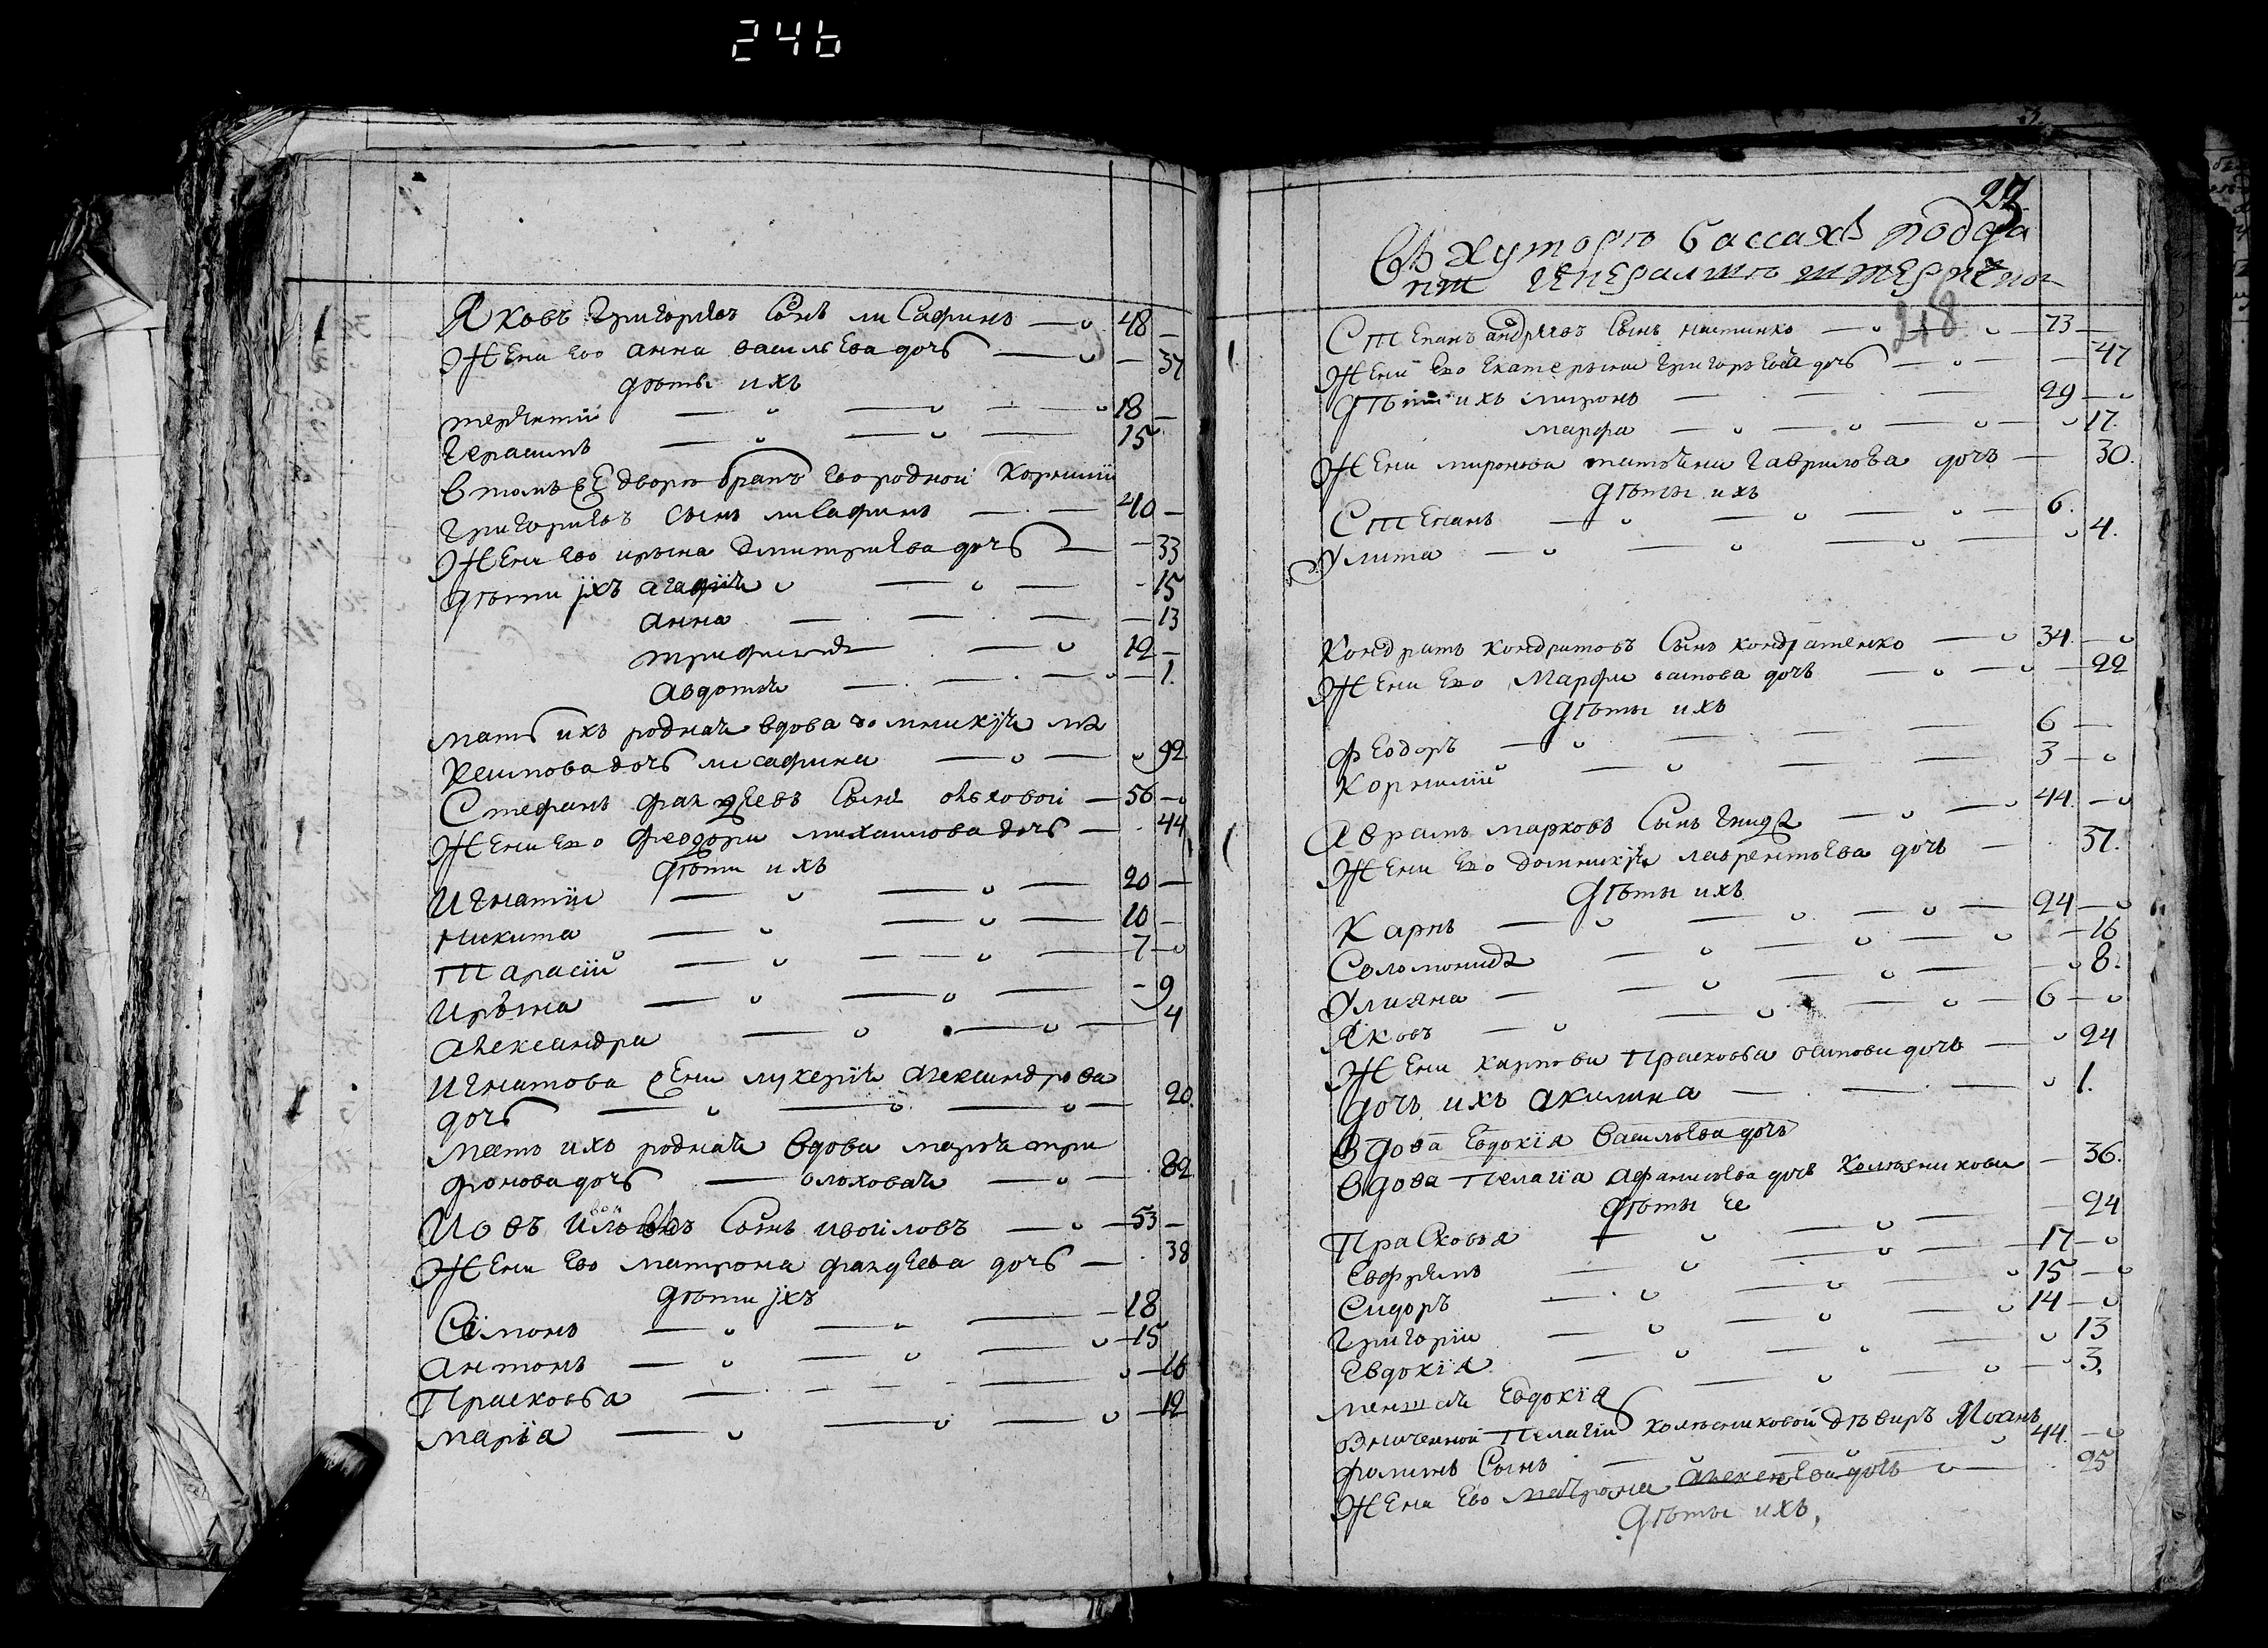 246
Яковъ Григорьевъ Сынъ лисафинъ 48
Жена ево анна васильева дочь 37
дѣти ихъ
терентий 18
Герасимъ 15
В томъ же дворѣ братъ его родной Корнилий
Григорьевъ сынъ лисафинъ 40
Жена ево ирына дмитриева дочь 33
дѣти ихъ агафия 15
анна 13
12
авдотия 1.
мать ихъ родная вдова домникия
дочь лисафина 92
Стефанъ фаддеевъ Сынъ 56
Жена ево феодора михаилова дочь 44
дѣти ихъ
Игнатий 20
Никита 10
Тарасий 7
Ирына 9
Александра 4
Игнатова жена лукерия александрова
дочь 20.
мать ихъ родная вдова три
фонова дочь 82
Иовъ Сынъ ивойловъ 53
Жена ево матрона фаддеева дочь 38
дѣти ихъ
Симонъ 18
Антонъ 15
Прасковья 16
Мария 12
27
Въ хуторѣ бассахъ подда
нн генералшѣ штеричево
218
Степанъ андреевъ Сынъ 73
Жена ево екатерына григорьева дочь 47
дѣти ихъ миронъ 29
марфа 17.
Жена миронова татияна гаврилова дочь 30.
дѣты ихъ
Степанъ 6.
Улита 4.
Кондратъ кондратовъ Сынъ кондратенко 34
Жена ево Марфа дочь 22
дѣты ихъ
Феодоръ 6
Корнилий 3
Аврамъ марковъ Сынъ гнида 44.
Жена ево домникия лаврентьева дочь 37.
дѣты ихъ
Карпъ 24
Соломонида 16
Улияна 8.
Яковъ 6
Жена карпова Прасковья дочь 24
дочь ихъ акилина 1.
Вдова Евдокия васильева дочь
Вдова Пелагия афанасьева дочь колѣсникова 36.
дѣты ее 24
Прасковья
Ефремъ 17
Сидоръ 15
Григорий 14
Евдокия 13
меншая Евдокия 3.
Означенной Пелагии колѣсниковой дѣверъ Иоанъ
Сынъ 44
Жена ево матрона алексеева дочь 25
дѣты ихъ,